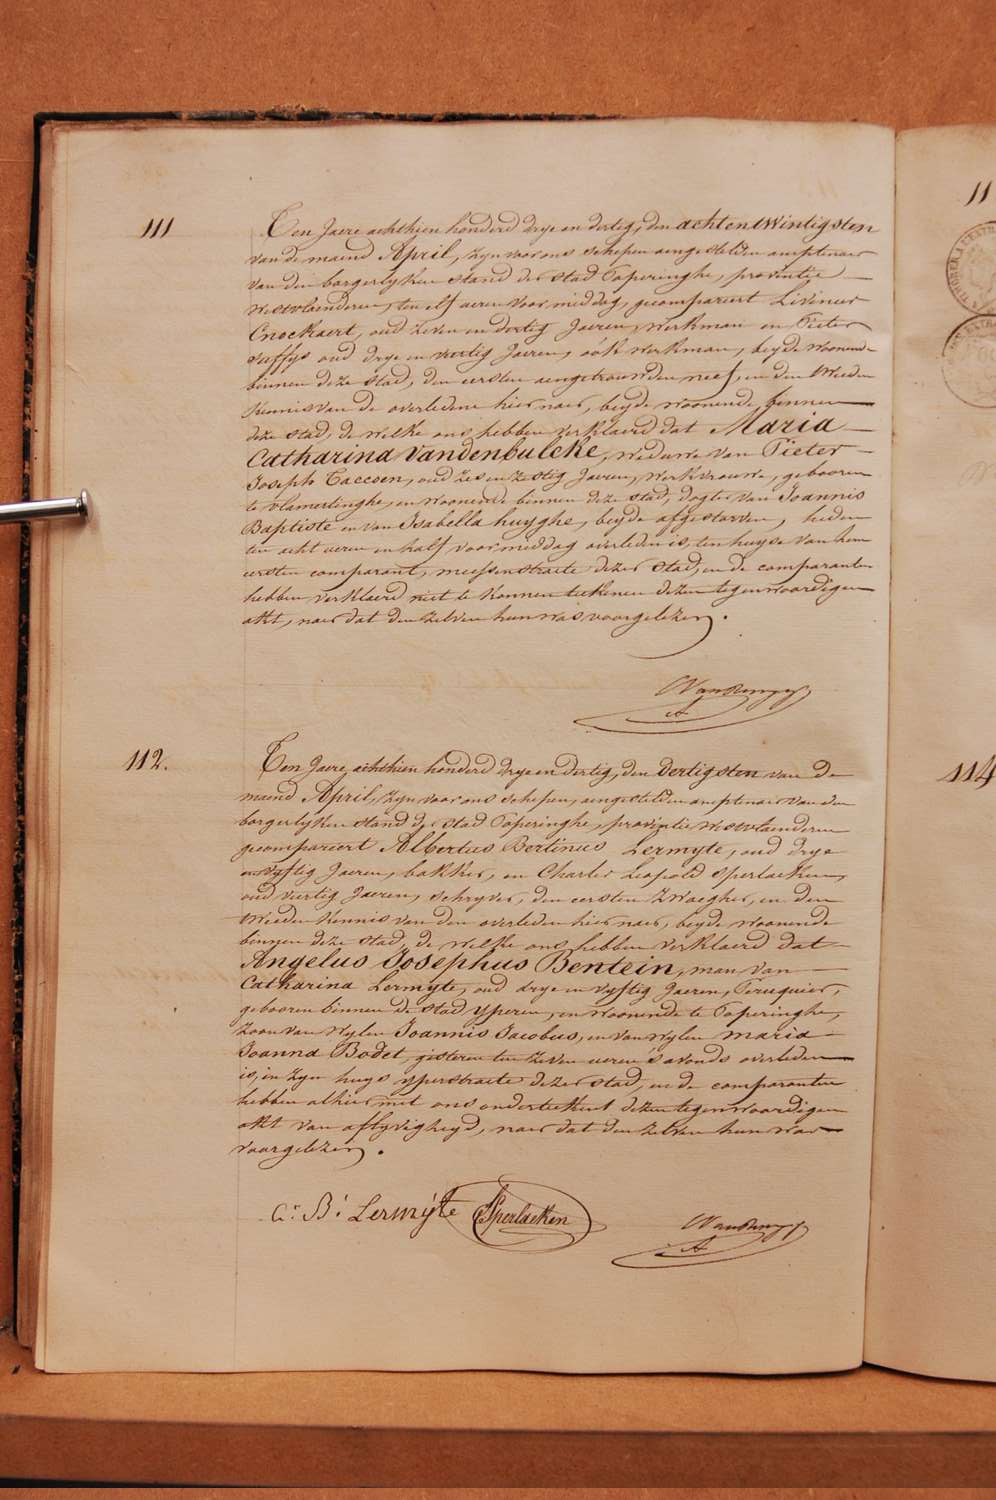 111
Ten Jaere achthien honderd drye en dertig, den achtentwintigsten
van de maend April, zyn voor ons schepen aengestelden amptenaer
van den borgerlyken stand der stad Poperinghe, provintie
Westvlaenderen, ten elf ueren voor middag, gecompareert Livinus
Cnockaert, oud zeven en dertig Jaeren, werkman en Pieter
saffys oud drye en viertig Jaeren, óók werkman, beyde woonende
binnen deze stad, den eersten aengetrouwden neef, en den tweeden
kennis van de overledene hier naer, beyde woonende binnen
deze stad, de welke ons hebben verklaerd dat Maria
Catharina Vandenbulcke, weduwe van Pieter
Joseph Taccoen, oud zes en zestig Jaeren, werkvrouwe, geboren
te vlamertinghe, en woonende binnen deze stad, dogter van Joannis
Baptiste en van Isabella huyghe, beyde afgestorven, heden
ten acht ueren en half voormiddag overleden is, ten huyse van hem
eersten comparant, meessenstraete dezer stad, en de comparanten
hebben verklaerd niet te konnen teekenen dezen tegenwoordigen
akt, naer dat den zelven hun was voorgelezen.
112.
Ten Jaere achthien honderd drye en dertig, den dertigsten van de
maend April, zyn voor ons schepen, aengestelden amptenaer van den
borgerlyken stand der stad Poperinghe, provintie westvlaenderen
gecompareert Albertus Bertinus Lermyte, oud drye
en vyftig Jaeren, bakker, en Charles Leopold Sperlaeken,
oud viertig Jaeren, schryver, den eersten zwaegher, en den
tweeden kennis van den overleden hier naer, beyde woonende
binnen deze stad, de welke ons hebben verklaerd dat
Angelus Josephus Bentein, man van
Catharina Lermyte, oud drye en vyftig Jaeren, Peruquier,
geboren binnen de stad yperen, en woonende te Poperinghe,
zoon van wylen Joannis Jacobus, en van wylen maria
Joanna Bodet, gisteren ten zeven ueren s'avonds overleden
is, in zyn huys yperstraete dezer stad, en de comparanten
hebben alhier met ons onderteekent dezen tegenwoordigen
akt van aflyvigheyd, naer dat den zelven hun was
voorgelezen.
Bt Lermyte Sperlaeken
114